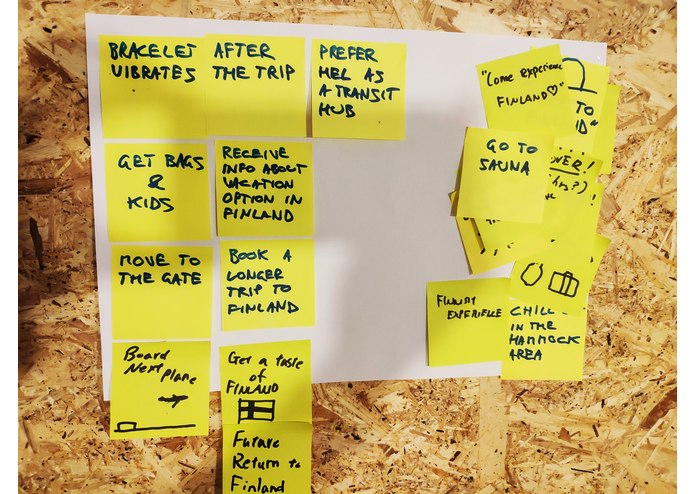 BRACELET
VIBRATES
AFTER
THE TRIP
PREFER
HEL AS
A TRANSIT
HUB
GET BAGS
&
KIDS
RECEIVE
INFO ABOUT
VACATION
OPTION IN
FINLAND
MOVE TO
THE GATE
BOOK A
LONGER
TRIP TO
FINLAND
Board
Next Plane
Get a taste
of
FINLAND
Future
Return to
Finland
"Come experience
FINLAND♡"
TO
GO TO
SAUNA
EXPERIENCE
CHILL
IN THE
HAMMOCK
AREA